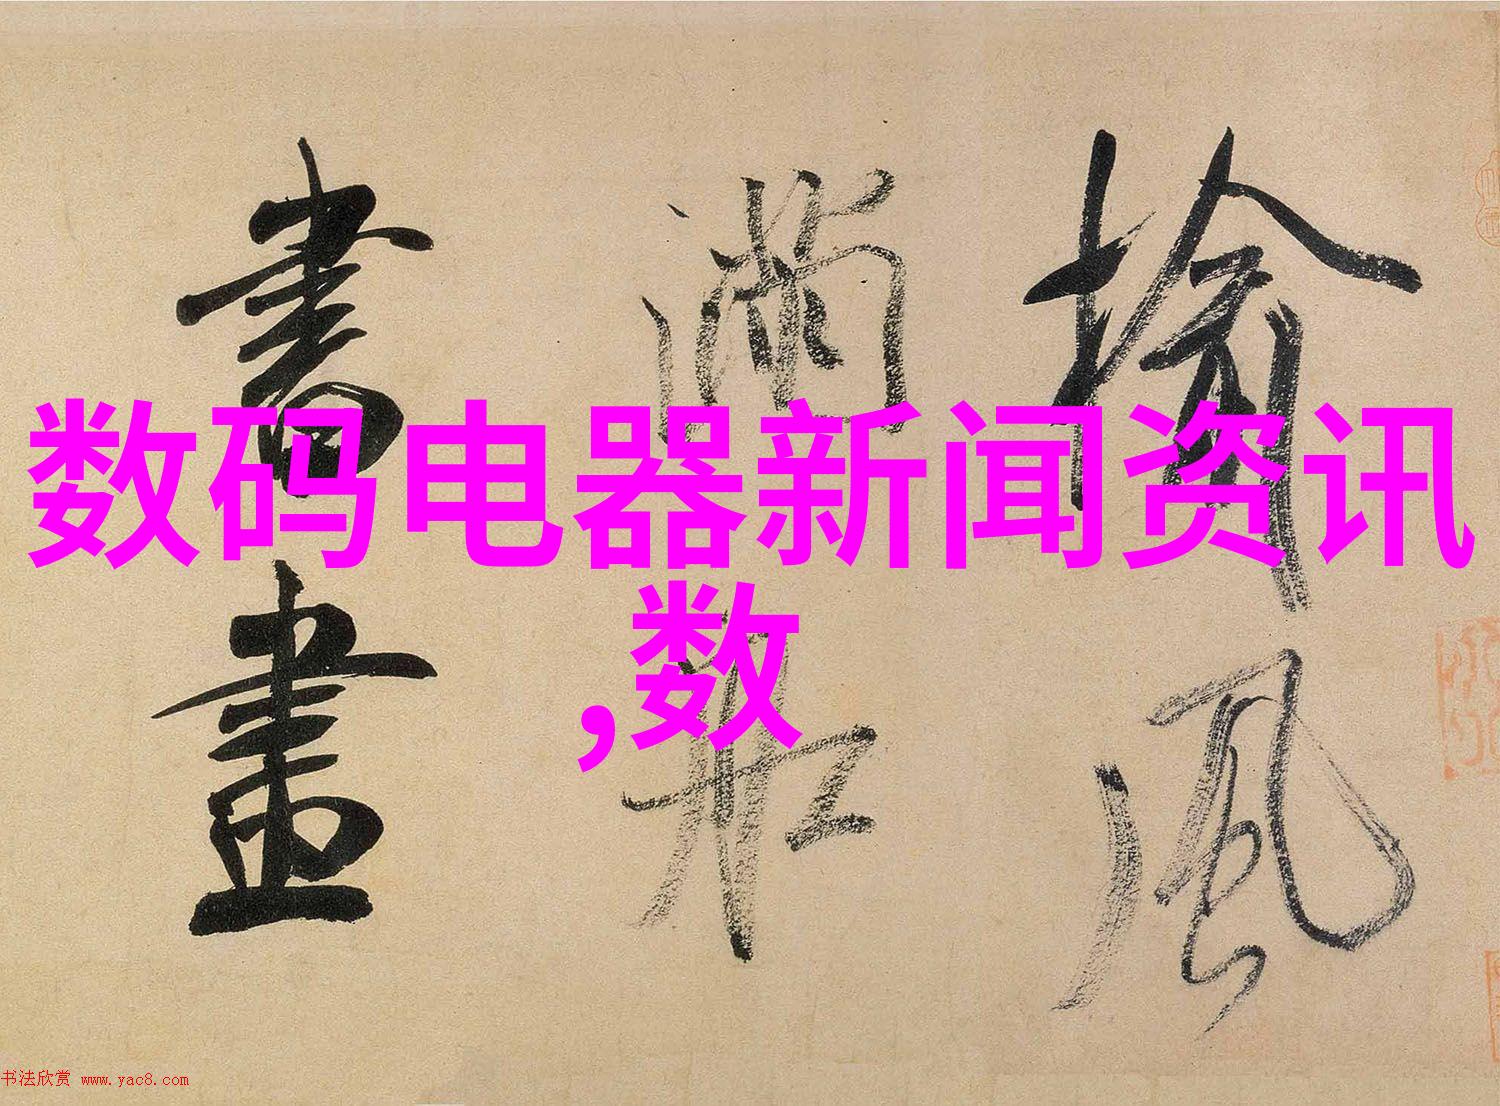 榆風
滿船
書畫
数码电器新闻资讯
,数
书法欣赏 www.yac8.com